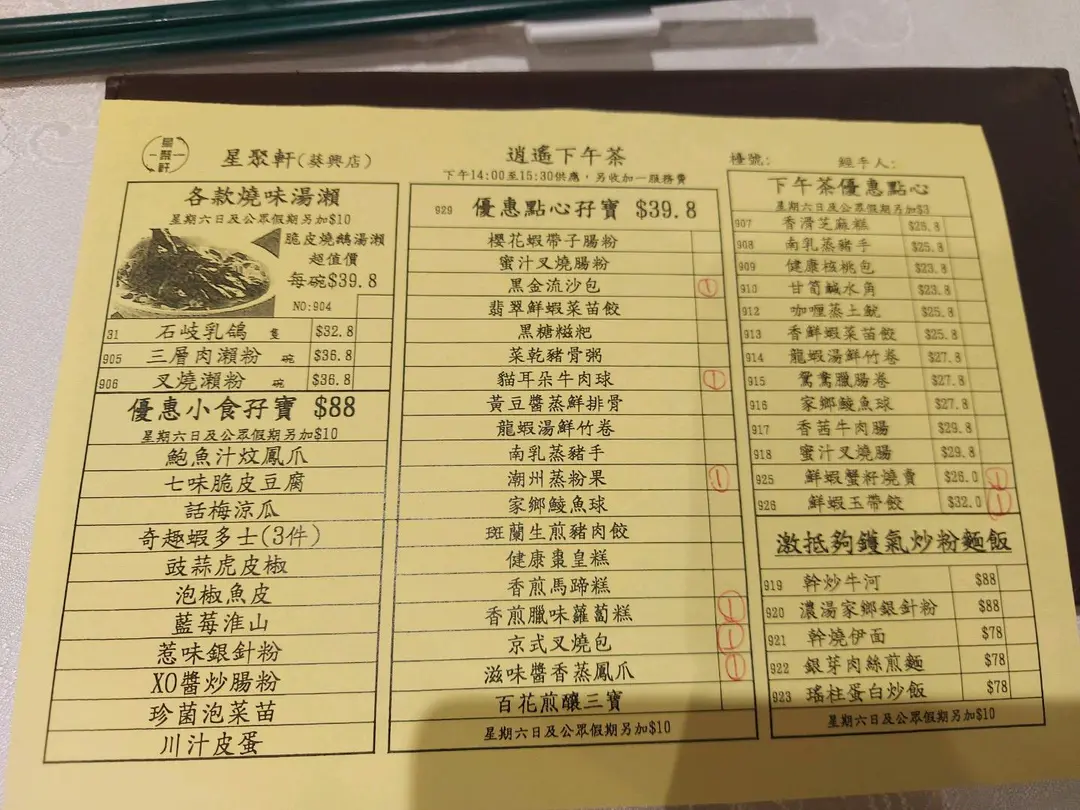 星聚軒
星聚軒(葵興店)
逍遙下午茶
下午14:00至15:30供應，另收加一服務費
檯號:
經手人:
各款燒味湯瀨
星期六日及公眾假期另加$10
脆皮燒鵝湯瀨
超值價
每碗$39.8
NO:904
31 石岐乳鴿 隻 $32.8
905 三層肉瀨粉 碗 $36.8
906 叉燒瀨粉 碗 $36.8
優惠小食孖寶 $88
星期六日及公眾假期另加$10
鮑魚汁炆鳳爪
七味脆皮豆腐
話梅涼瓜
奇趣蝦多士(3件)
豉蒜虎皮椒
泡椒魚皮
藍莓淮山
惹味銀針粉
XO醬炒腸粉
珍菌泡菜苗
川汁皮蛋
929 優惠點心孖寶 $39.8
櫻花蝦帶子腸粉
蜜汁叉燒腸粉
黑金流沙包 1
翡翠鮮蝦菜苗餃
黑糖糍粑
菜乾豬骨粥
貓耳朵牛肉球 1
黃豆醬蒸鮮排骨
龍蝦湯鮮竹卷
南乳蒸豬手
潮州蒸粉果 1
家鄉鯪魚球
斑蘭生煎豬肉餃
健康棗皇糕
香煎馬蹄糕
香煎臘味蘿蔔糕 1
京式叉燒包 1
滋味醬香蒸鳳爪 1
百花煎釀三寶
星期六日及公眾假期另加$10
下午茶優惠點心
星期六日及公眾假期另加$3
907 香滑芝麻糕 $25.8
908 南乳蒸豬手 $25.8
909 健康核桃包 $23.8
910 甘筍鹹水角 $23.8
912 咖喱蒸土魷 $25.8
913 香鮮蝦菜苗餃 $25.8
914 龍蝦湯鮮竹卷 $27.8
915 鴛鴦臘腸卷 $27.8
916 家鄉鯪魚球 $27.8
917 香茜牛肉腸 $29.8
918 蜜汁叉燒腸 $29.8
925 鮮蝦蟹籽燒賣 $26.0 1
926 鮮蝦玉帶餃 $32.0 1
激抵夠鑊氣炒粉麵飯
919 幹炒牛河 $88
920 濃湯家鄉銀針粉 $88
921 幹燒伊面 $78
922 銀芽肉絲煎麵 $78
923 瑤柱蛋白炒飯 $78
星期六日及公眾假期另加$10